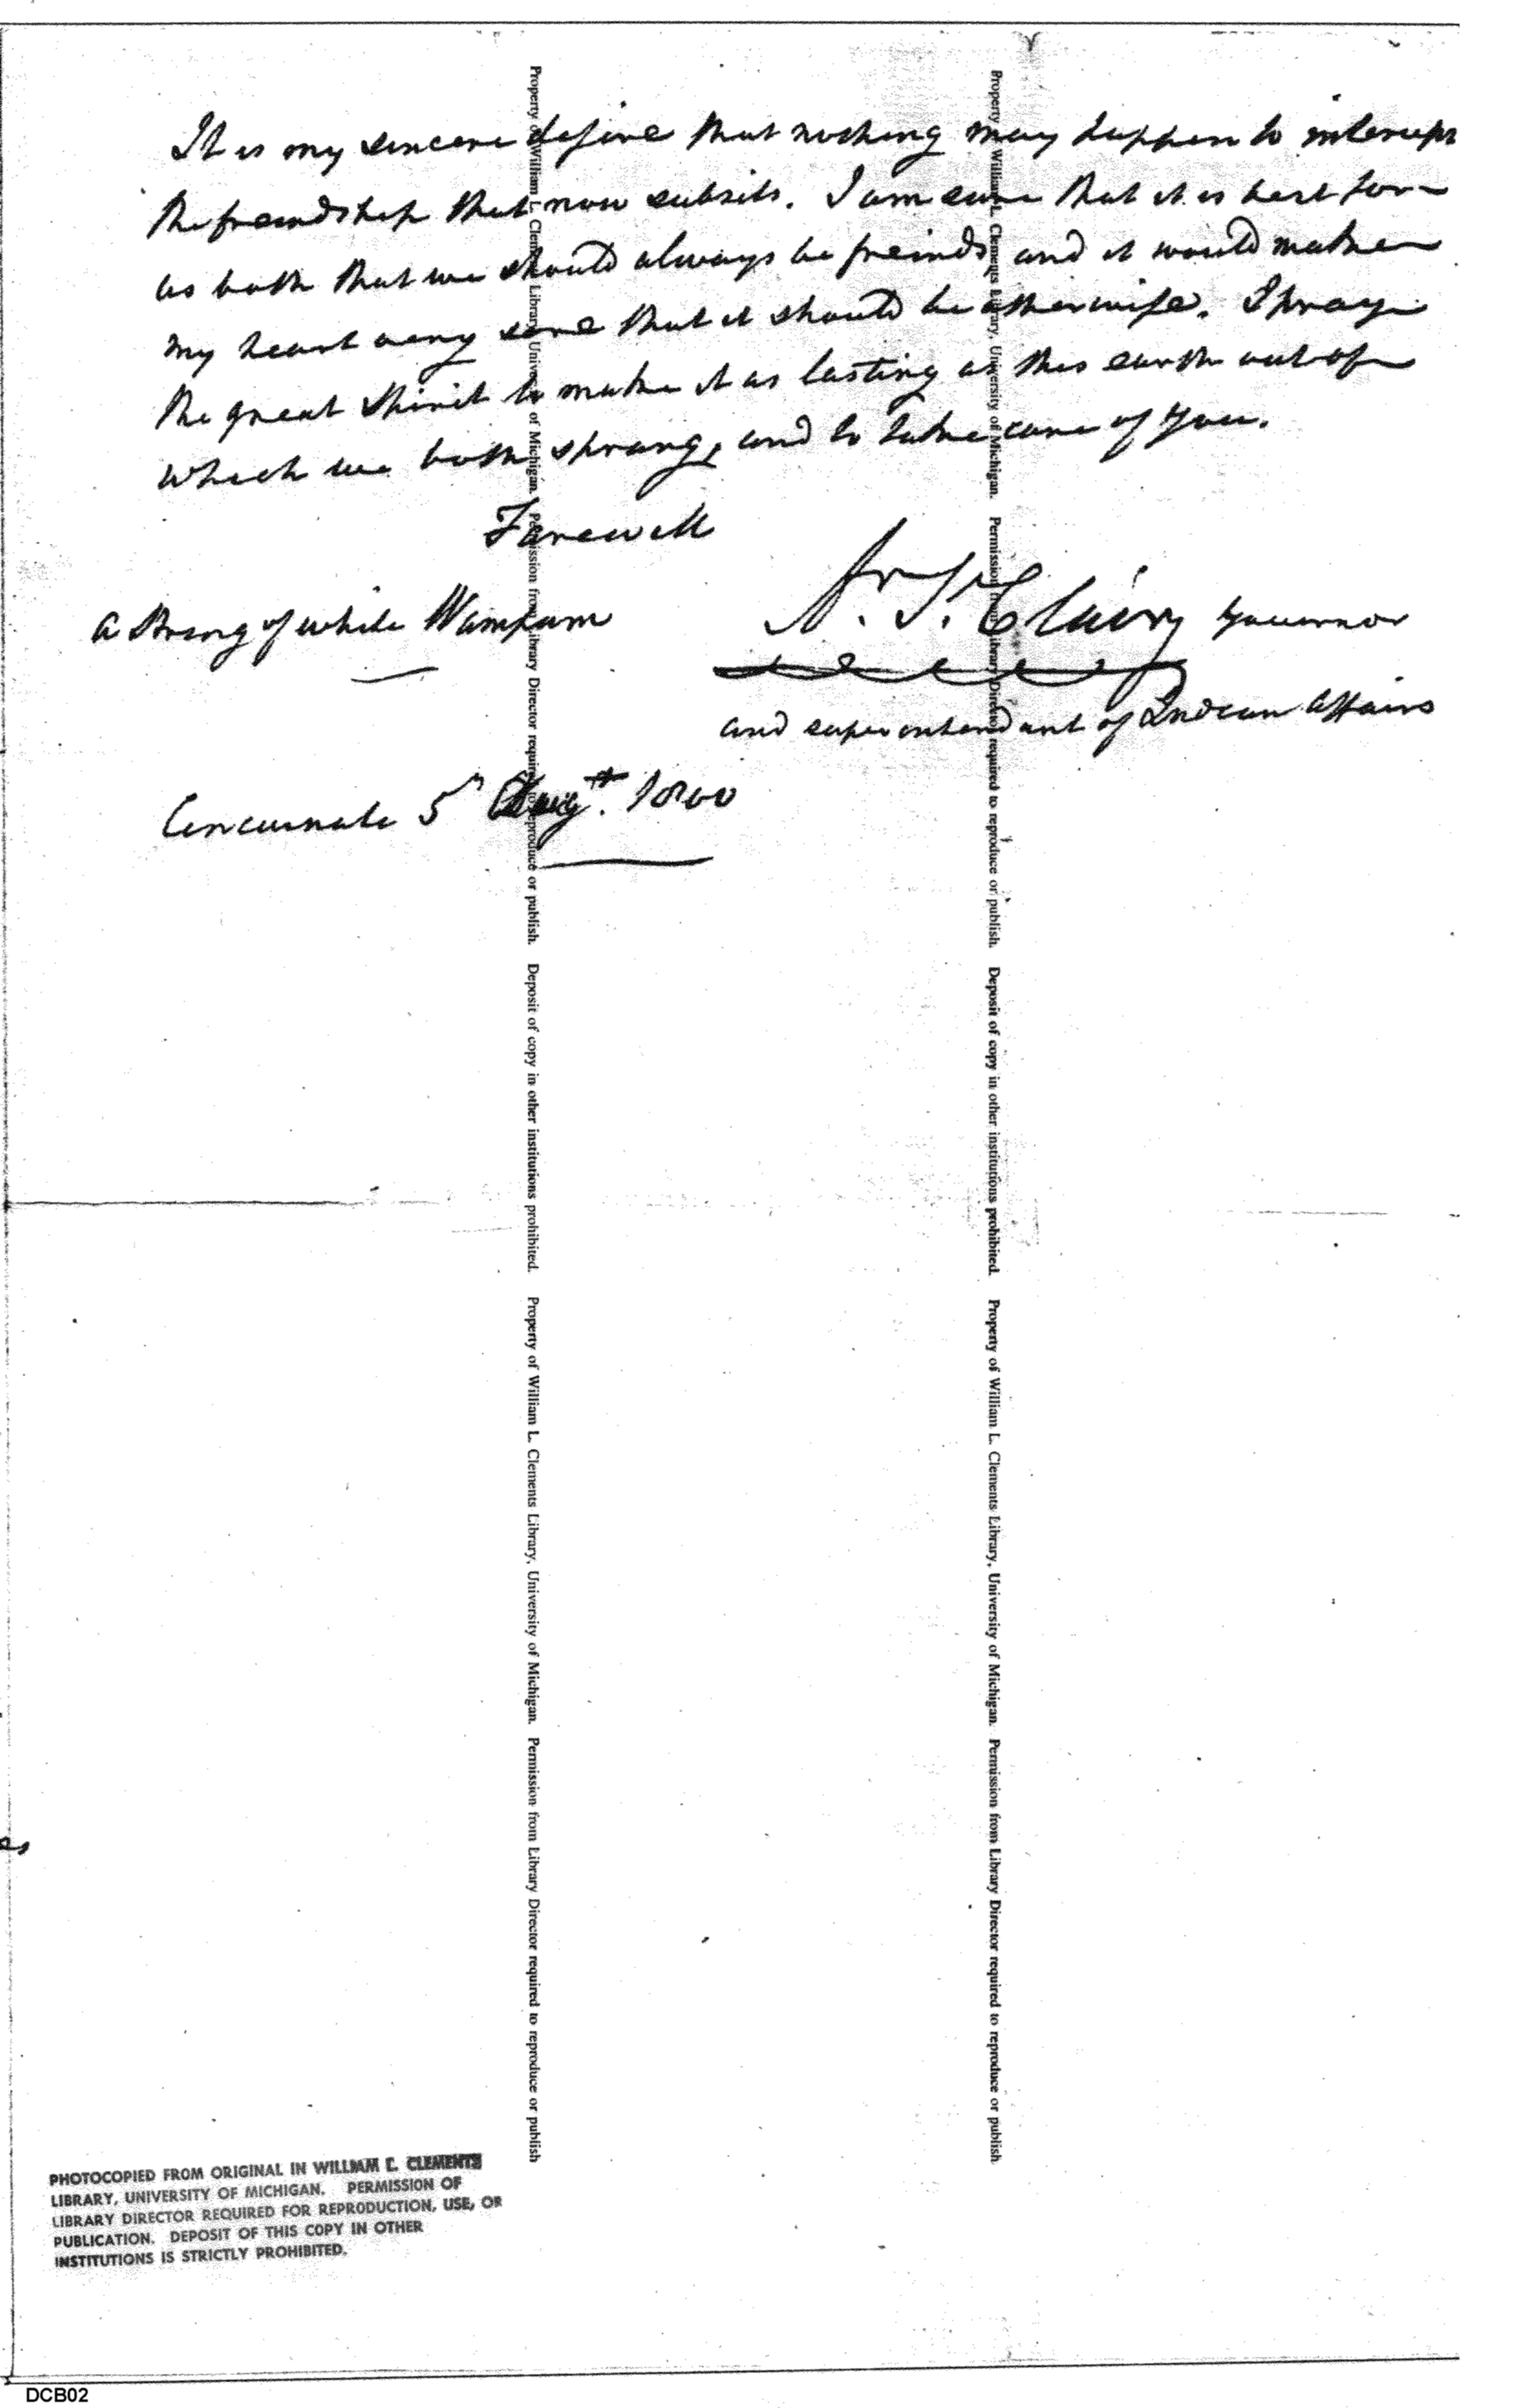 It is my sincere desire that nothing may happen to interrupt
the freindship that now subsits. I am sure that it is best for
us both that we should always be freinds and it would make
my heart very sore that it should be otherwise. I pray
the great Spirit to make it as lasting as this earth out of
which we both sprang, and to take care of you.
Farewell
a String of white Wampum
Ar. St. Clair Governor
and superintendant of Indian Affairs
Cincinnati 5th Augt. 1800
Property of William L. Clements Library, University of Michigan. Permission from Library Director required to reproduce or publish. Deposit of copy in other institutions prohibited. Property of William L. Clements Library, University of Michigan. Permission from Library Director required to reproduce or publish
Property of William L. Clements Library, University of Michigan. Permission from Library Director required to reproduce or publish. Deposit of copy in other institutions prohibited. Property of William L. Clements Library, University of Michigan. Permission from Library Director required to reproduce or publish
es
PHOTOCOPIED FROM ORIGINAL IN WILLIAM L. CLEMENTS
LIBRARY, UNIVERSITY OF MICHIGAN. PERMISSION OF
LIBRARY DIRECTOR REQUIRED FOR REPRODUCTION, USE, OR
PUBLICATION. DEPOSIT OF THIS COPY IN OTHER
INSTITUTIONS IS STRICTLY PROHIBITED.
DCB02